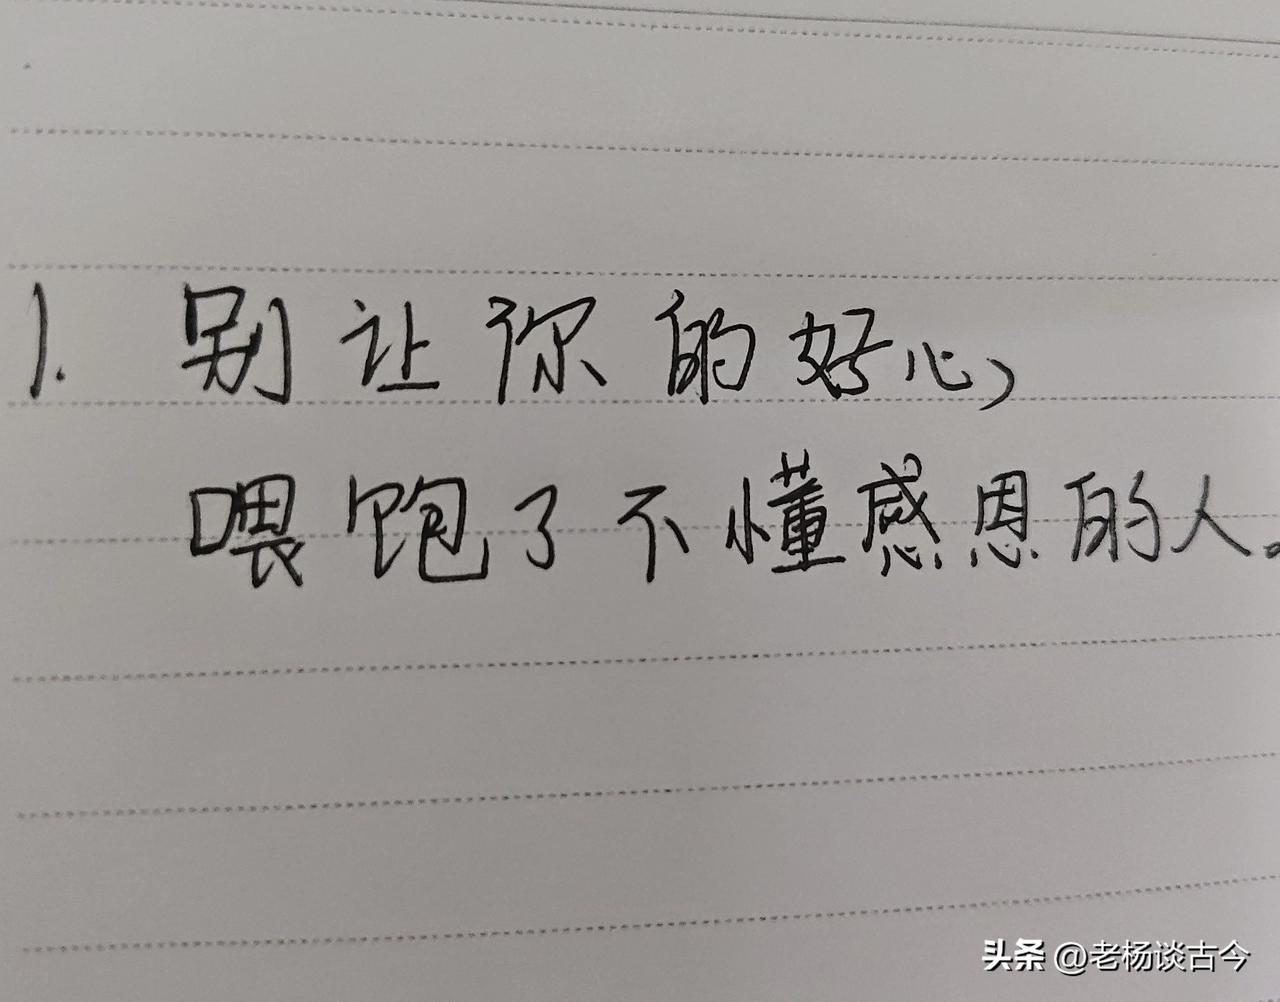 1. 别让你的好心,
喂饱了不懂感恩的人。
头条 @老杨谈古今